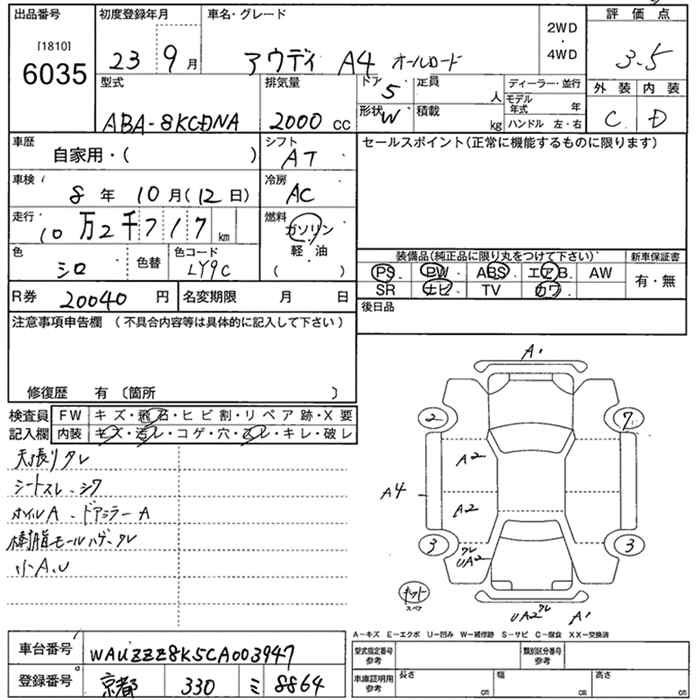 出品番号 初度登録年月 車名・グレード 2WD・4WD 評価点
[1810] 6035 23 9月 アウディ A4 オールロード 3.5
型式 排気量 ドア 5 定員 人 ディーラー・並行 外装 内装
ABA-8KCDNA 2000 cc 形状 W 積載 kg モデル年式 年 C D
ハンドル 左・右
車歴 シフト セールスポイント(正常に機能するものに限ります)
自家用・( ) AT
車検 冷房
8年 10月(12日) AC
走行 燃料
10万2千717km ガソリン
軽・油
( )
色 色替 色コード 装備品(純正品に限り丸をつけて下さい) 新車保証書
シロ LY9C PS PW ABS エアB. AW 有・無
SR ナビ TV カワ
R券 20040円 名変期限 月 日 後日品
注意事項申告欄 (不具合内容等は具体的に記入して下さい)
修復歴 有 〔箇所 〕
検査員 FW キズ・飛石・ヒビ割・リペア跡・X要
記入欄 内装 キズ・汚レ・コゲ・穴・スレ・キレ・破レ
天張りタレ
シートスレ・シワ
ホイルA・ドアミラーA
樹脂モールハゲ、タレ
小A.U
A1
2 7
A2
A4
A2
3 3
UA2
スペア
UA2 A1
A―キズ E―エクボ U―凹み W―補修跡 S―サビ C―腐食 XX―交換済
車台番号 WAUZZZ8K5CA003947 型式指定番号 参考 類別区分番号 参考
登録番号 京都 330 ミ 8864 車庫証明用 参考 長さ cm 幅 cm 高さ cm